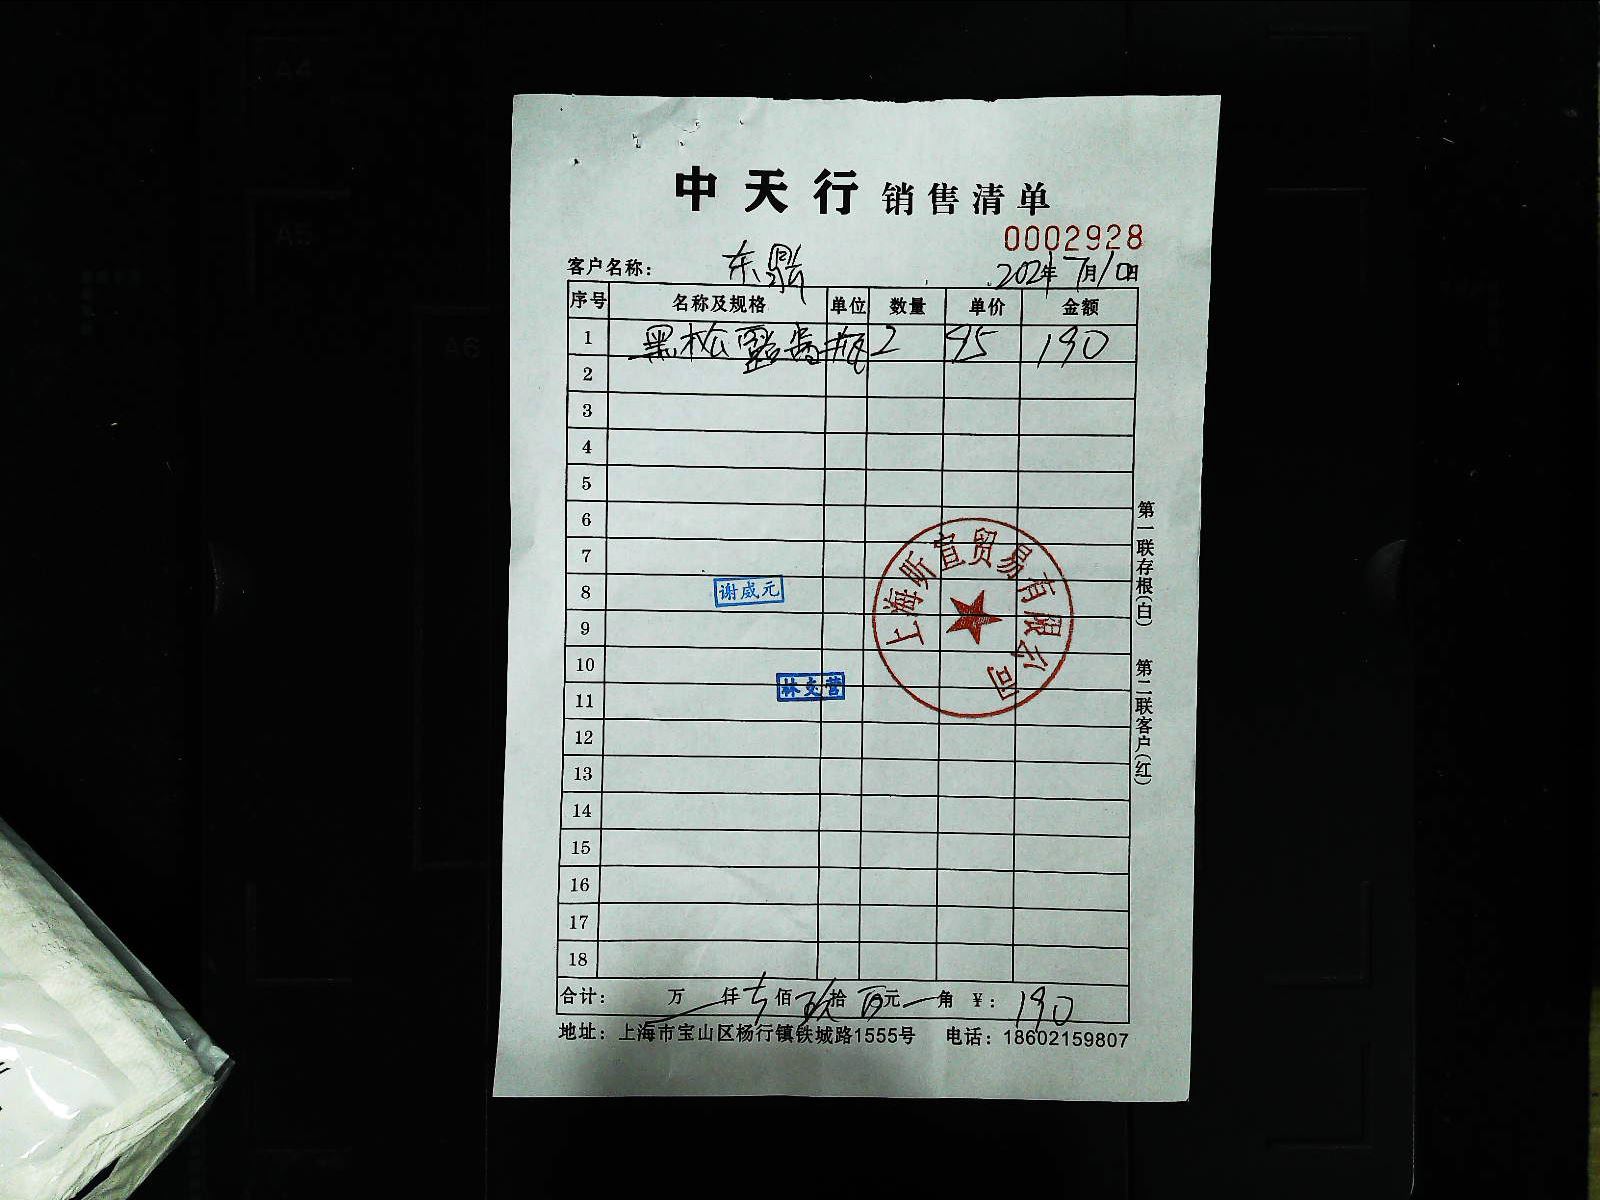 A4
A5
A6
中天行 销售清单
0002928
客户名称： 东 202年7月10日
序号 名称及规格 单位 数量 单价 金额
1 黑松露酱 瓶 2 95 190
2
3
4
5
6
7
8
9
10
11
12
13
14
15
16
17
18
谢威元
林文营
上海昕宜贸易有限公司
第一联存根(白) 第二联客户(红)
合计： 万 仟 佰 玖拾 元 角 ￥：190
地址：上海市宝山区杨行镇铁城路1555号 电话：18602159807